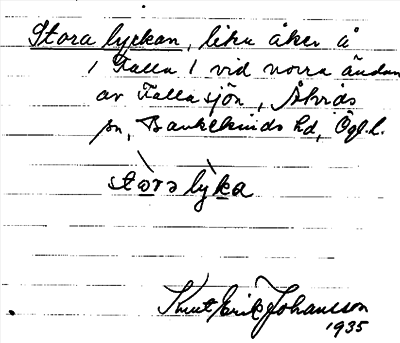 Stora lyckan, liten åker å
1 Falla 1 vid norra ändan
av Fallasjön, Åtvids
sn, Bankekinds hd, Ögl.
stora lyka
Knut Erik Johansson
1935